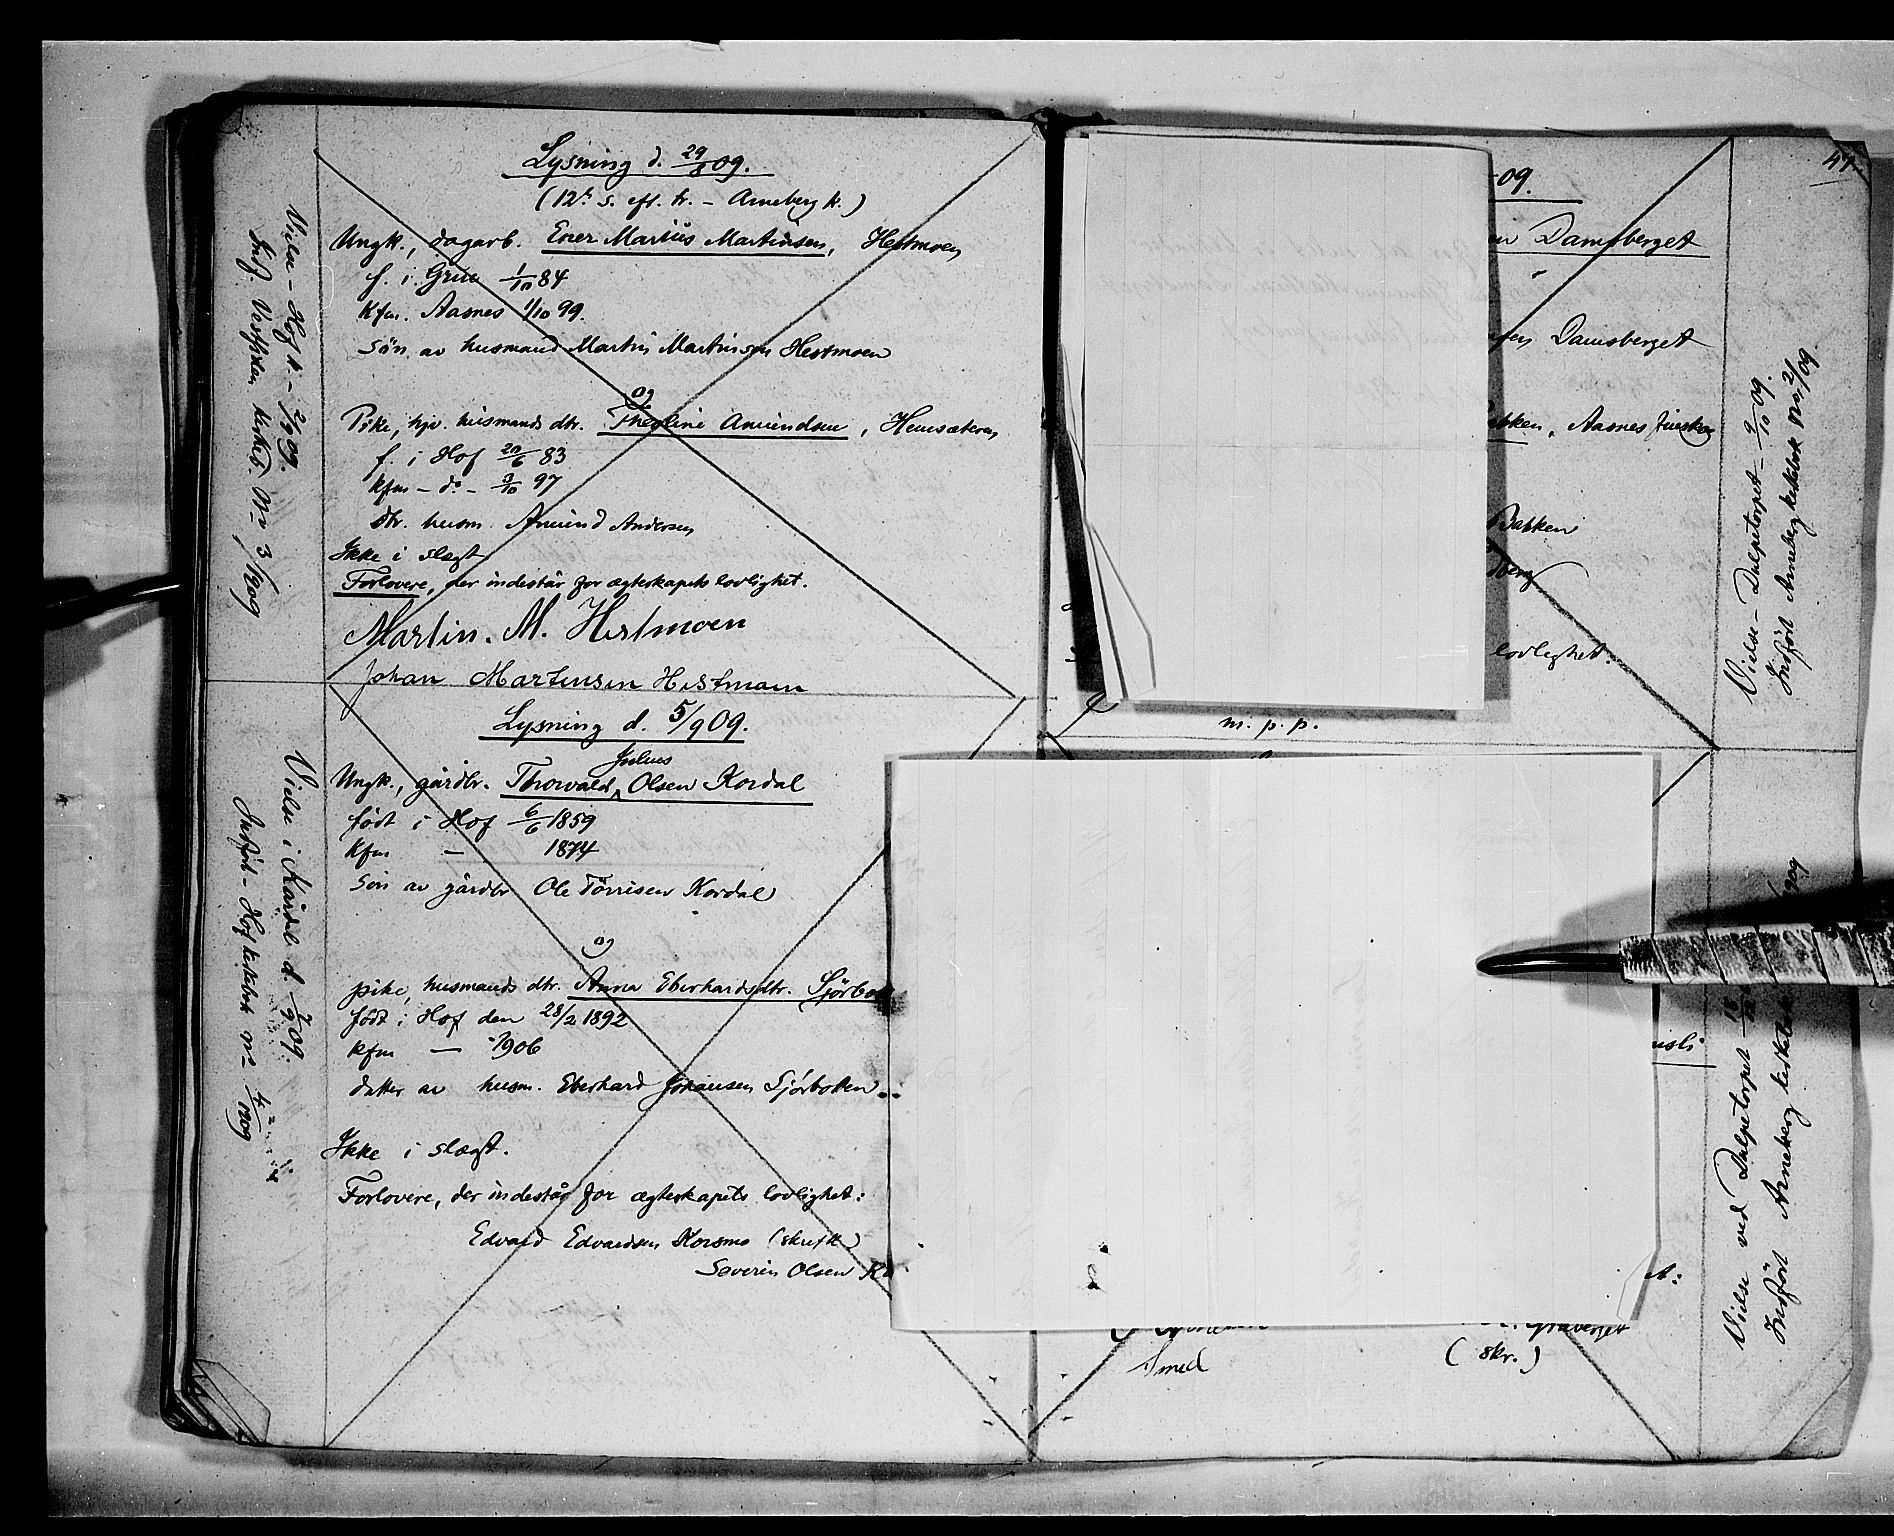 Lysning d. 29/8 09.
(12te s. eft. tr. – Arneberg k.)
Ungk., dagarb. Ener Martius Martinsen, Hestmoen
f. i. Grue 1/10 84
kfm. Aasnes 1/10 99.
sön av husmand Martin Martinsen Hestmoen
og
Pike, hjv. husmands dtr. Theoline Amundsen, Hemsæteren
f. i Hof 20/6 83
kfm – do – 3/10 97
dtr. husm. Amund Andersen
Ikke i slægt
Forlovere, der indestår for ægteskapets lovlighet.
Martin. M. Hestmoen
Johan Martinsen Hestmoen
Vielse – Hof k. – 2/9 09.
Indf. Vestsiden kirkeb. No 3/1909
Lysning d. 5/9 09.
Julius
Ungk., gårdbr. Thorvald Olsen Kordal
født i Hof 6/6 1859
kfm – 1874
sön av gårdbr Ole Törrisen Kordal
og
pike, husmands dtr. Anna Eberhardsdtr. Sjörbott
født i Hof den 28/2 1892
kfm – 1906
datter av husm. Eberhard Johansen Sjörbotten
Ikke i slægt.
Forlovere, der indestår for ægteskapets lovlighet:
Edvard Edvardsen Korsmo (skriftl)
Severin Olsen K
Vielse i Kårdal d. 7/9 09.
Indført – Hof kirkebok No 4/1909
47
-09.
en Damsberget
sen Damsberget
akken, Aasnes finskog
Bakken
dberg
lovlighet.
m. p. p.
Vielse – Dulpetorpet – 9/10 09.
Indført Arneberg kirkebok No 21/09.
isli
t:
Graberget
Smed
(skr.)
Vielse ved Dulpetorpet 18/12
Indført Arneberg kirkebok
1909